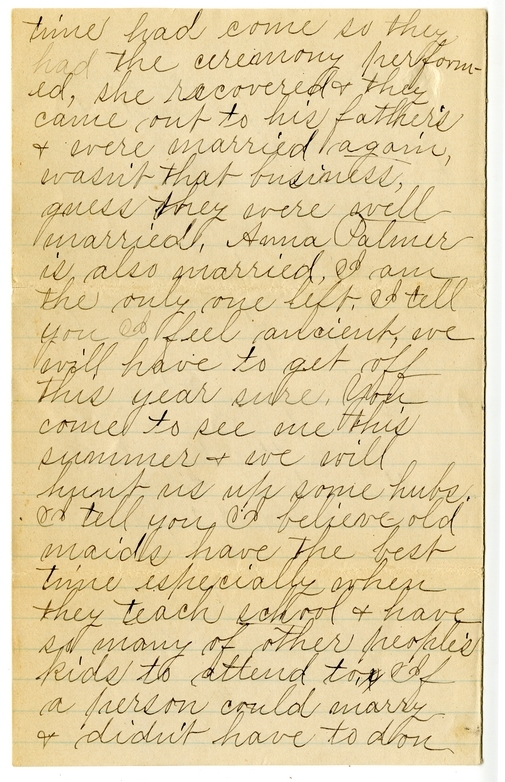 time had come so they
had the ceremony perform-
ed, she recovered & they
came out to his father's
& were married again,
wasn't that business,
guess they were well
married. Anna Palmer
is also married, I am
the only one left. I tell
you I feel ancient, we
will have to get off
this year sure. You
come to see me this
summer & we will
hunt us up some hubs.
I tell you I believe old
maids have the best
time especially when
they teach school & have
so many of other people's
kids to attend to, If
a person could marry
& didn't have to don